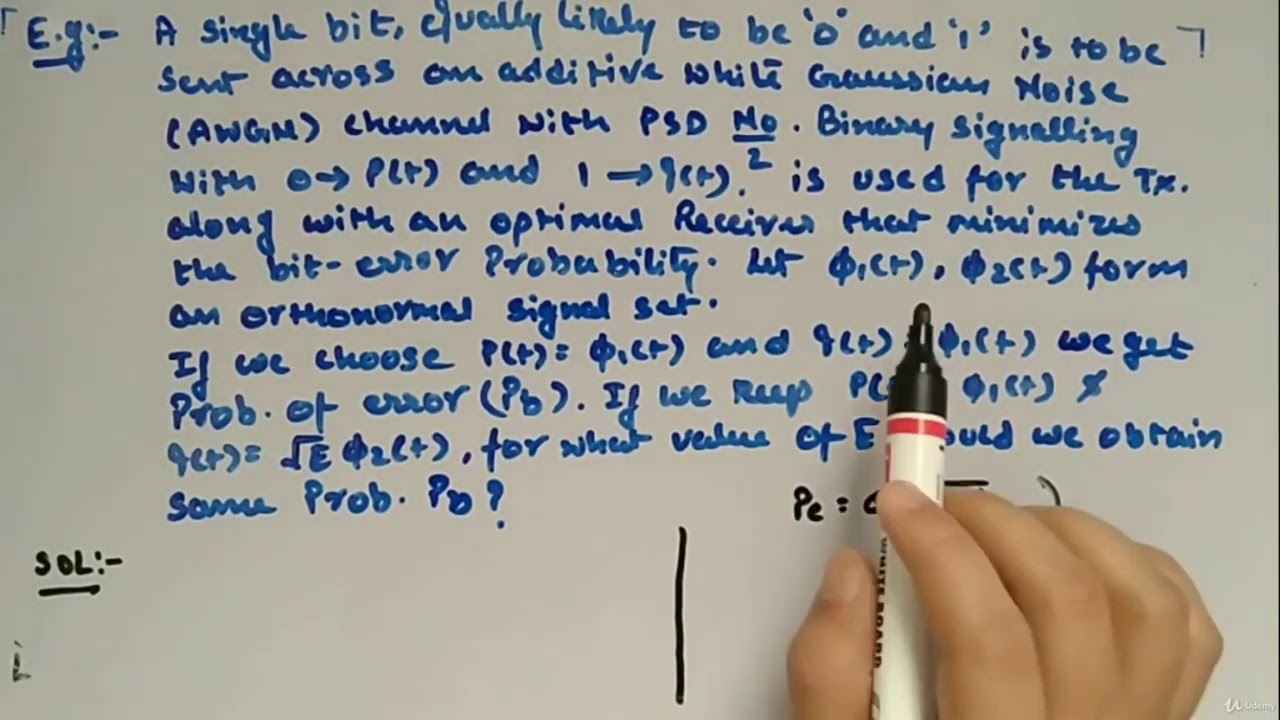 E.g:- A single bit, equally likely to be '0' and '1' is to be
sent across an additive white Gaussian Noise
(AWGN) channel with PSD No/2. Binary signalling
with 0→P(t) and 1→q(t). is used for the Tx.
along with an optimal Receiver that minimizes
the bit-error Probability. Let ϕ1(t), ϕ2(t) form
an orthonormal signal set.
If we choose P(t)= ϕ1(t) and q(t) ϕ1(t) we get
Prob. of error (Pb). If we keep P( ϕ1(t) &
q(t)= √E ϕ2(t), for what value of E would we obtain
same Prob. Pb?
Pe =
SOL:-
Udemy